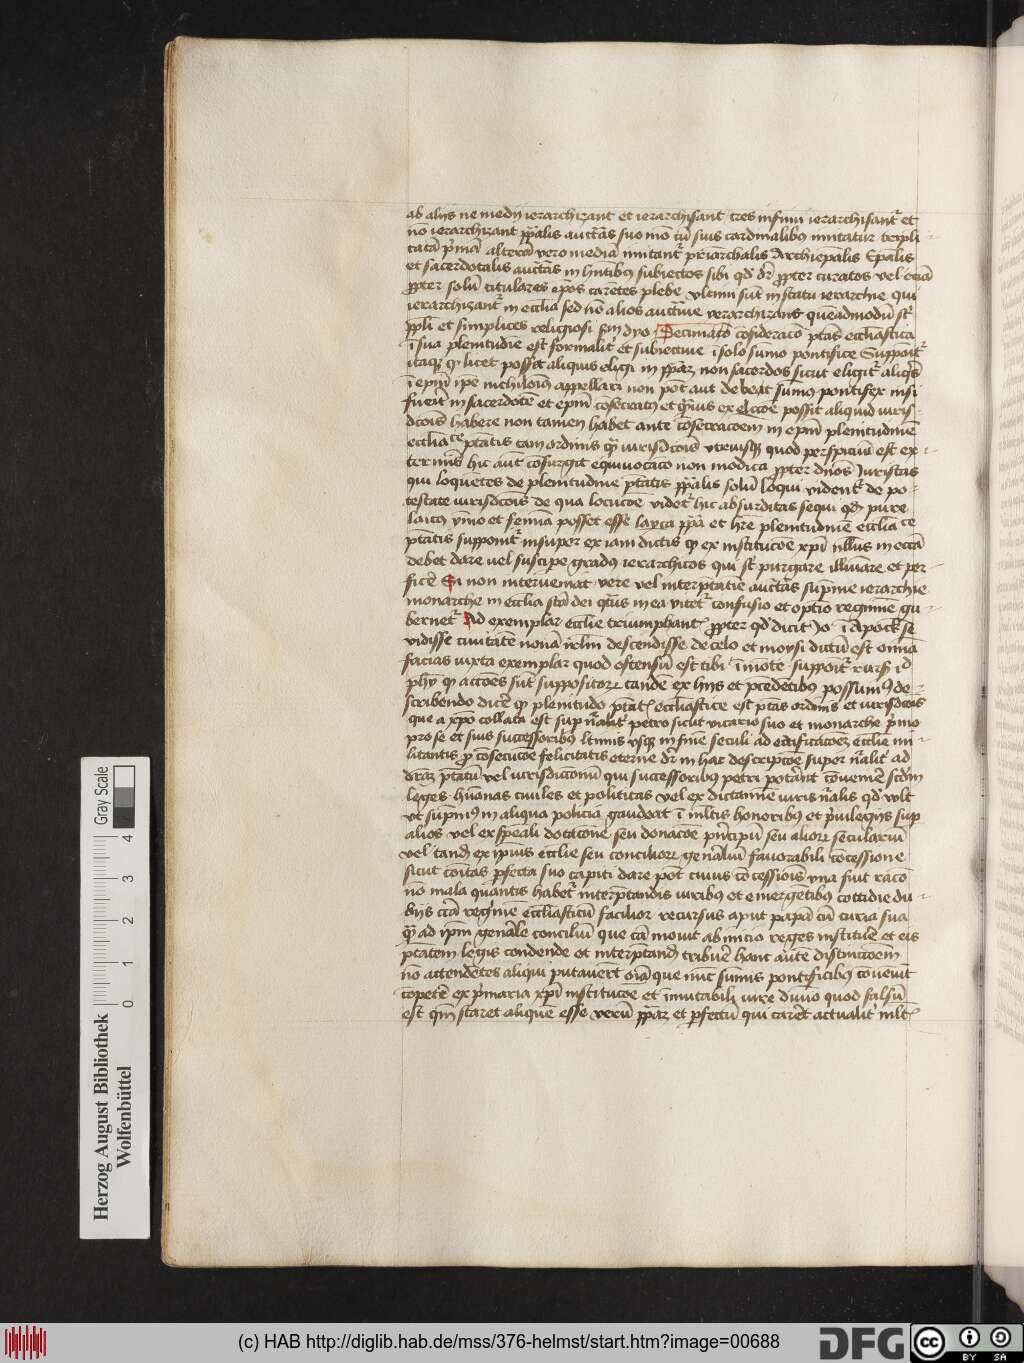 ab alijs ne medij ierarchizant et ierarchisant᷑ tres infimi ierarchisant᷑ et
nō ierarchizant pp̄alis auctās suo mō cū suis cardinalibꝰ imitatur tripli-
tatā p̄mā alterā vero mediā imitant᷑ p̄riarchalis Archiep̄alis Ep̄alis
et sacerdotalis auctās in hn̄tibꝰ subiectos sibi qd̓ dr̄ ꝓpter curatos vel etiā
ꝓpter solū titulares ep̄os carētes plebe vltimi sūt in statu ierarchie qui
ierarchizant᷑ in ecclīa sed nō alios auctīue ierarchizant quēadmodū st̄
pp̄li et simplices religiosi fm̄ dyo Decimatō cōsideracō ptās ecclīastica
ī sua plenitudīe est formalit̓ et subiectiue ī solo sumo pontifice Supponit᷑
itaqꝫ ꝙ licet possit aliquis eligi in pp̄aꝫ non sacerdos sicut eligit᷑ aliq̄s
ī ep̄m ip̄e nichilomī appellari non pōt aut debeat summꝰ pontifex nisi
fuerit in sacerdotē et ep̄m cōsecratꝰ et q̄uis ex elccōe possit aliquid iuris-
dcōis habere non tamen habet ante cōsecracōem in ep̄m plenitudinē
ecclīaᵗᶜᵉ ptatis tam ordinis q̄ꝫ iurisdcōis vtriusqꝫ quod perspicuū est ex
terminis hic aut̄ cōsurgit equiuocacō non modica ꝓpter dn̄os Juristas
qui loquētes de plenitudine ptatis pp̄alis solū loqui vident᷑ de po-
testate iurisdcōis de qua locucōe videt᷑ hic absurditas sequi qd̓ pure
laicꝰ ymo et femīa posset esse layca pp̄a et hr̄e plenitudinē ecclīaᵗᶜᵉ
ptātis supponit᷑ insuper ex iam dictis ꝙ ex institucōe xp̄i nllus in ecclīa
debet dare vel suscipe gradus ierarchicos qui st̄ purgare illuīare et per-
ficē Si non interueniat vere vel interp̄tatīe auctās sup̄me ierarchie
monarche in ecclīa sctā dei q̄uis in ea vitet᷑ confusio et optīo regimīe gu-
bernet᷑ Ad exemplar ecclīe triumphant᷑ ꝓpter qd̓ dicit Jo ī Apock se
vidisse ciuitatē nouā irlm̄ descendisse de celo et moysi dictū est om̄ia
facias iuxta exemplar quod ostensū est tibi ī mōte supponit᷑ rursꝰ ꝑ
phy ꝙ accōes sūt suppositorꝝ tandē ex hijs et p̄cedētibꝰ possumꝰ de-
scribendo dicē ꝙ plenitudo ptat᷑ ecclīastice est ptās ordīs et iurisdcōis
que a xp̄o collata est sup̄nr̄alit̓ petro sicut vicario suo et monarche p̄mo
pro se et suis successoribꝰ ltīmis vsqꝫ in finē seculi ad edificacōeꝫ ecclīe mi-
litantis ꝓ cōsecucōe felicitatis eterne dr̄ in hac descripcōe super nr̄alit̓ ad
dr̄aꝫ ptatū vel iurisdictionū qui successoribꝰ petri potānt conuenīe scdm̄
leges hūanas ciuiles et politicas vel ex dictamine iuris nr̄alis qd̓ vult
vt sup̄mꝰ in aliqua policia gaudeat ī mltis honoribꝰ et p̄uilegijs sup̄
alios vel ex sp̄eali dotacōne seu donacōe p̄ncipū seu aliorꝝ seculariū
vel tandꝫ ex ip̄ius ecclīe seu conciliorꝝ gen̄aliū fauorabili cōcessione
sicut cōitas ꝑfecta suo capiti dare pōt cuius cōcessiōis vna fuit racō
nō mala quantis habet᷑ interp̄tandis iuribꝰ et emergētibꝰ cottidie du-
bijs circa regimē ecclīasticū facilior recursus aput papā cū curia sua
q̄ꝫ ad ip̄m gen̄ale conciliū que cā mouit ab inicio reges instituē et eis
ptatem legis condende et interp̄tandi tribuē hanc aūte distinctōem
nō attendētes aliqui putauerūt oīa que nūc sūmis pontificibꝰ cōuenit
cōpetē ex p̄maria xp̄i institucōe et īmutabili iure diuīo quod falsū
est qm̄ staret aliquē esse verū pp̄aꝫ et ꝑfectū qui caret actualit̓ mlt᷑
Herzog August Bibliothek
Wolfenbüttel
0 1 2 3 4
Gray Scale
(c) HAB http://diglib.hab.de/mss/376-helmst/start.htm?image=00688
DFG
cc BY SA